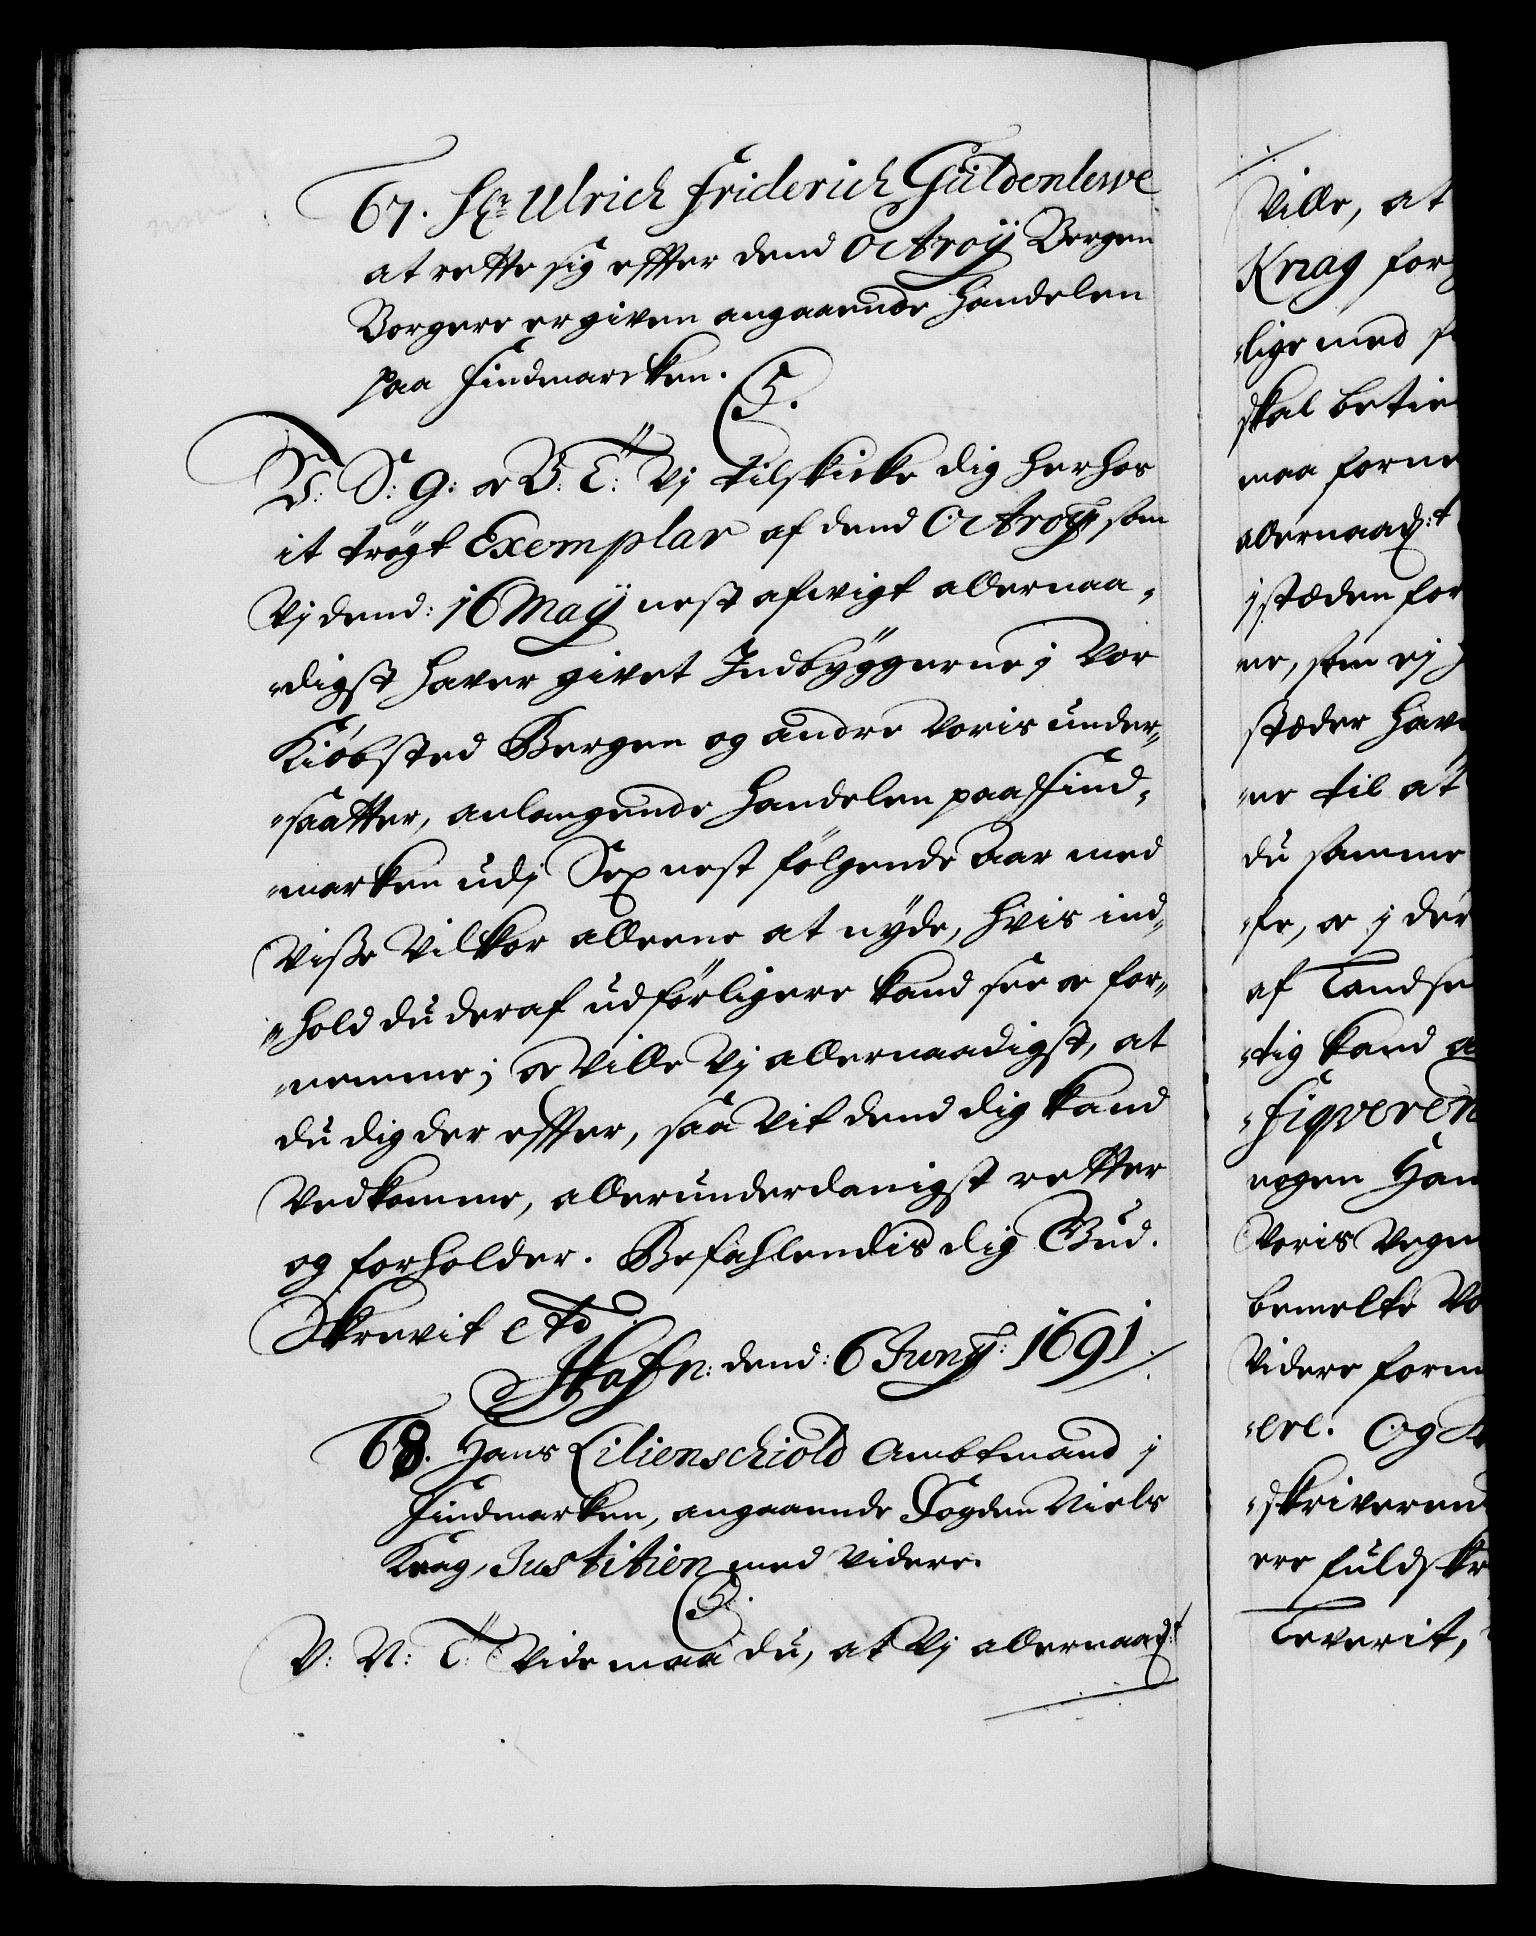 67. Hr: Ulrich Friderich Güldenlewe
at rette sig effter dend Octroÿ Bergen
Borgere er given angaaende Handelen
paa Findmarcken.
C5.
V: S: G: oc V: T: Vj tilskicke dig herhos
it trÿgt Exemplar af dend Octroj, som
Vj dend: 16 Maÿ nest afvigt allernaa-
digst haver givet Indbÿggerne j Vor
Kiöbsted Bergen og andre Voris under-
saatter, anlangende Handelen paa Find-
marken udj Sex nest fölgende aar med
Visse Vilkor alleene at nÿde, hvis ind-
hold du deraf udförligere kand see oc for-
nemme; oc Ville Vj allernaadigst, at
du dig der effter, saa vit dend dig kand
Vedkomme, allerunderdanigst retter
og forholder. Befahlendis dig Gud.
Skrevit etc.
Hafn: dend: 6 Junij: 1691.
68. Hans Lilienschiold Ambtmand j
Findmarken, angaaende Fogden Niels
Krag, Justitien med Videre.
C5.
V: N: T: Vide maa du, at Vj allernaad:t
Ville, at
Knag for
lige med
skal betie
maa forne
allernaad:t
j steden for
ne, som ej
stæder hav
ne til at
du samme
fe, oc j der
af Landse
tig kand
figveren
nogen Han
Voris Vegn
bemelte Vo
Videre form
ere. Og
skriveren
ere fuldskr
Leverit,